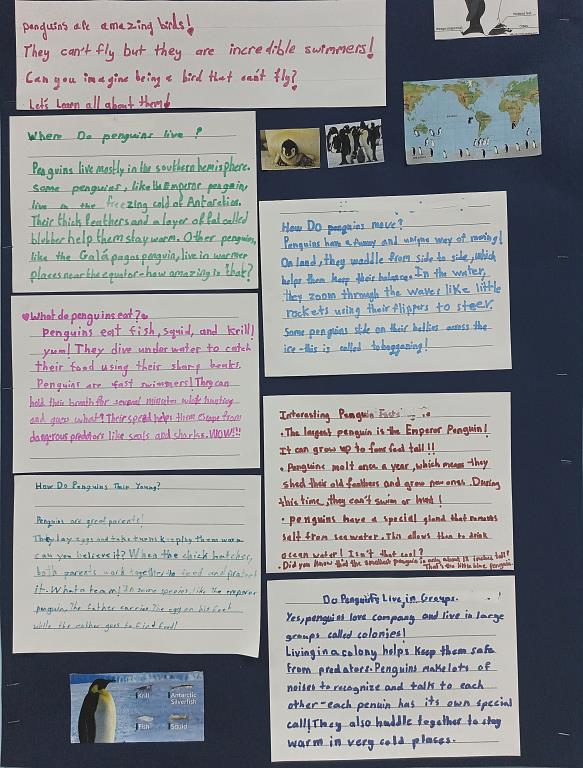 Penguins are amazing birds!
They can't fly but they are incredible swimmers!
Can you imagine being a bird that can't fly?
Let's Learn all about them!
Where Do penguins live ?
Penguins live mostly in the southern hemisphere.
Some penguins, like the Emperor penguin,
live in the freezing cold of Antarctica.
Their thick feathers and a layer of fat called
blubber help them stay warm. Other penguins,
like the Galápagos penguin, live in warmer
places near the equator-how amazing is that?
What do penguins eat?
Penguins eat fish, squid, and krill!
yum! They dive under water to catch
their food using their sharp beaks.
Penguins are fast swimmers! They can
hold their breath for several minutes while hunting
and guess what? Their speed helps them escape from
dangerous predators like seals and sharks. WOW!!!
How Do Penguins Their Young?
Penguins are great parents!
They lay eggs and take turns keeping them warm
can you believe it? When the chick hatches,
both parents work together to feed and protect
it. What a team! In some species, like the emperor
penguin, the father carries the egg on his feet
while the mother goes to find food!
Krill
Antarctic
Silverfish
Fish
Squid
How Do penguins move?
Penguins have a funny and unique way of moving!
On land, they waddle from side to side, which
helps them keep their balance. In the water,
they zoom through the waves like little
rockets using their flippers to steer.
Some penguins slide on their bellies across the
ice-this is called tobogganing!
Interesting Penguin Facts
• The largest penguin is the Emperor Penguin!
It can grow up to four feet tall!!
• Penguins molt once a year, which means they
shed their old feathers and grow new ones. During
this time, they can't swim or hunt!
• penguins have a special gland that removes
salt from sea water. This allows them to drink
ocean water! Isn't that cool?
• Did you know that the smallest penguin is only about 13 inches tall?
That's the little blue penguin.
Do Penguins Live in Groups.
Yes, penguins love company and live in large
groups called colonies!
Living in a colony helps keep them safe
from predators. Penguins make lots of
noises to recognize and talk to each
other-each penuin has its own special
call! They also huddle together to stay
warm in very cold places.